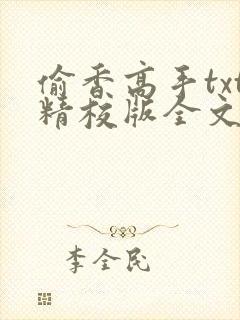 偷香高手txt
精校版全文
李全民